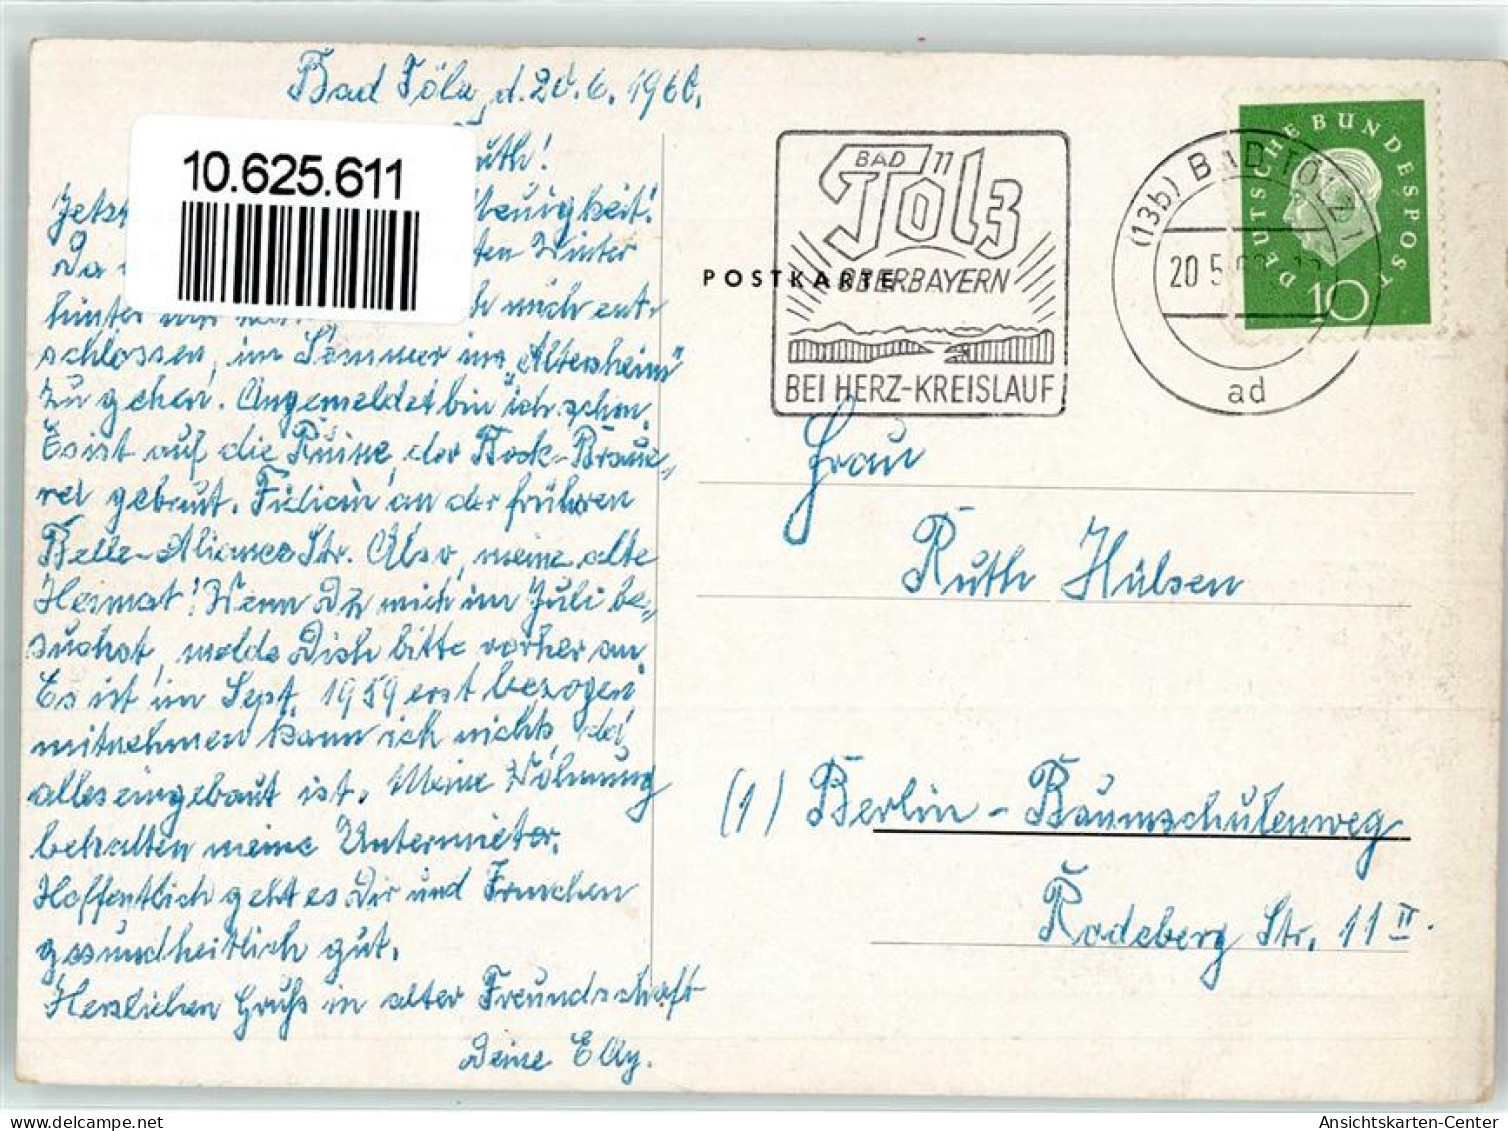 Bad Tölz, d. 20.6.1960.
10.625.611
Ruth!
Jetzt Neuigkeit!
Da ten Winter
hinter mir mich ent-
schlossen, im Sommer ins „Altersheim"
zu gehen. Angemeldet bin ich schon.
Es ist auf die Ruine der Bock-Braue-
rei gebaut. Fidicin an der früheren
Belle-Aliance Str. Also, meine alte
Heimat! Wenn Du mich im Juli be-
suchst, melde Dich bitte vorher an.
Es ist im Sept. 1959 erst bezogen
mitnehmen kann ich nichts, da
alles eingebaut ist. Meine Wohnung
behalten meine Untermieter.
Hoffentlich geht es Dir und
gesundheitlich gut.
Herzlichen Gruß in alter Freundschaft
Deine Elly.
POSTKARTE
BAD
Tölz
OBERBAYERN
BEI HERZ-KREISLAUF
(13b) BAD TÖLZ 1
20 5
ad
DEUTSCHE BUNDESPOST
10
Frau
Ruth Hülsen
(1) Berlin - Baumschulenweg
Rodeberg Str. 11 II.
Ansichtskarten-Center